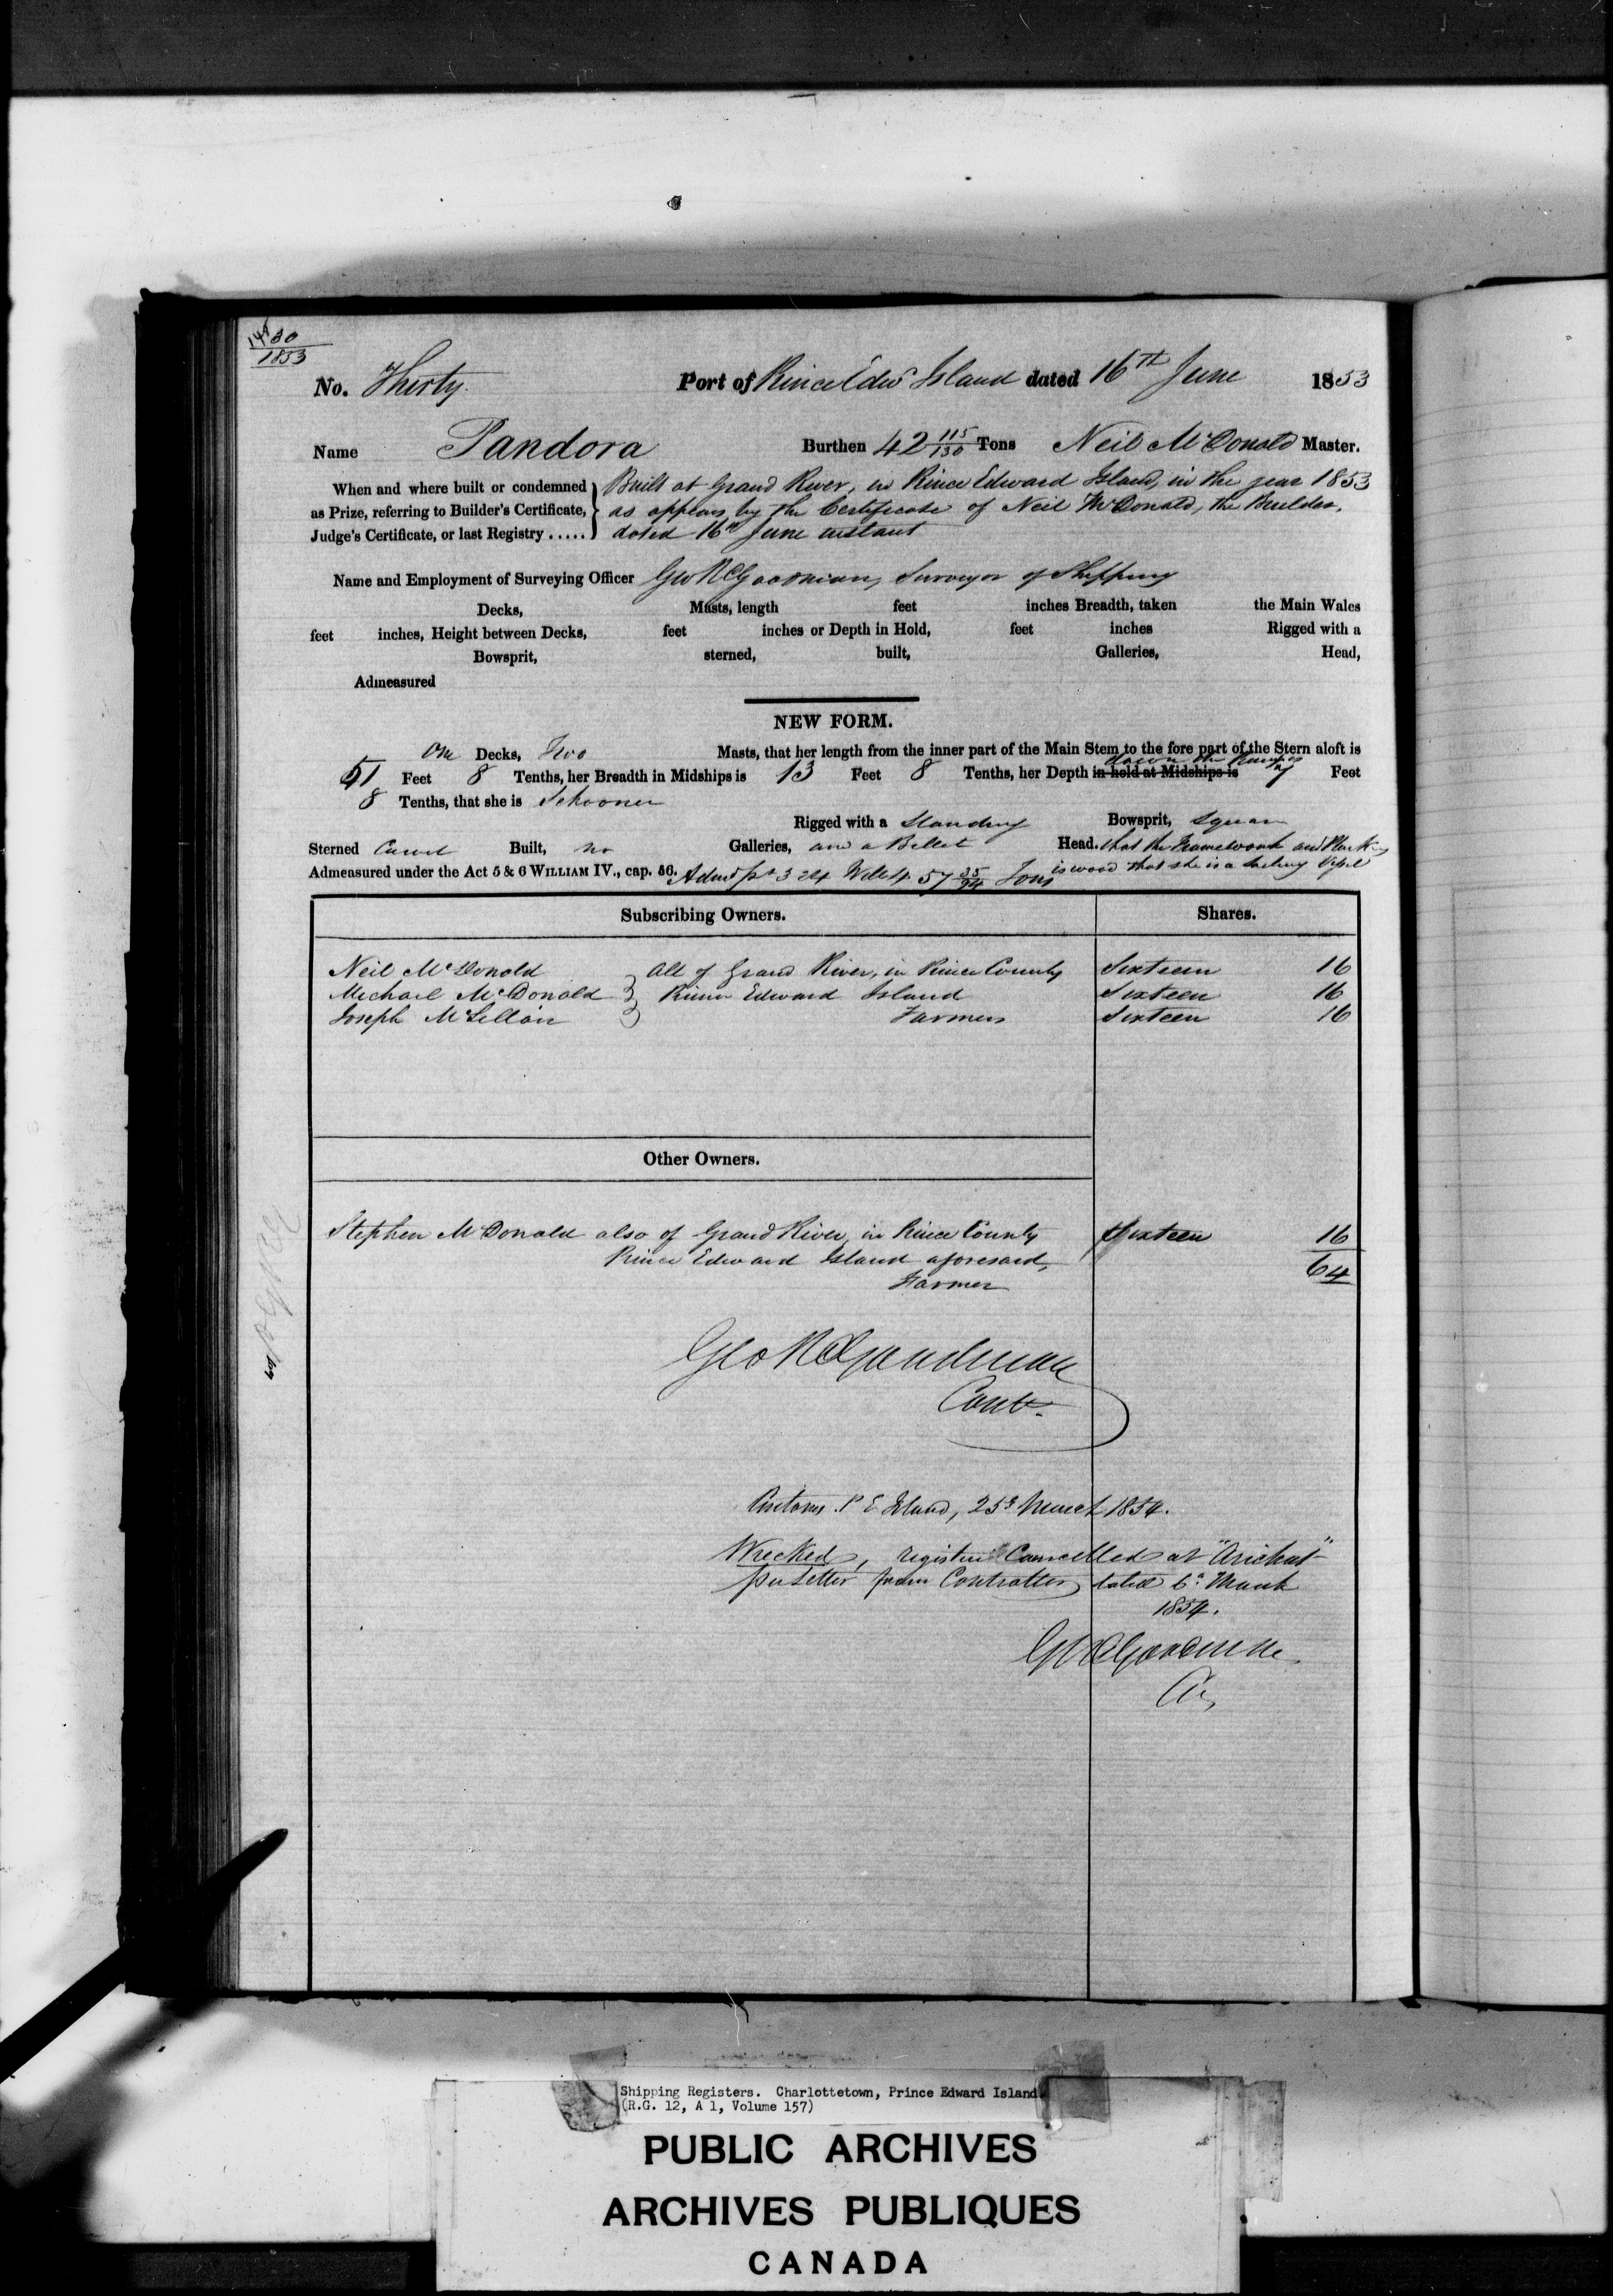 30
1853
No. Thirty. Port of Prince Edwd Island dated 16th June 1853
Name Pandora Burthen 42 115/130 Tons Neil McDonald Master.
When and where built or condemned Built at Grand River, in Prince Edward Island, in the year 1853
as Prize, referring to Builder's Certificate, as appears by the Certificate of Neil McDonald, the Builder,
Judge's Certificate, or last Registry ..... dated 16th June instant
Name and Employment of Surveying Officer Geo R Goodman, Surveyor of Shipping
Decks, Masts, length feet inches Breadth, taken the Main Wales
feet inches, Height between Decks, feet inches or Depth in Hold, feet inches Rigged with a
Bowsprit, sterned, built, Galleries, Head,
Admeasured
NEW FORM.
One Decks, Two Masts, that her length from the inner part of the Main Stem to the fore part of the Stern aloft is
down the Pumps
51 Feet 8 Tenths, her Breadth in Midships is 13 Feet 8 Tenths, her Depth in hold at Midships is 7 Feet
8 Tenths, that she is Schooner
Rigged with a Standing Bowsprit, Square
Sterned Carvel Built, no Galleries, and a Billet Head. that the Framework and Planking
is wood that she is a Sailing Vessel
Admeasured under the Act 5 & 6 WILLIAM IV., cap. 56. Admt pr 3 & 4 Will 4. 57 35/94 Tons
Subscribing Owners. Shares.
Neil McDonald All of Grand River, in Prince County Sixteen 16
Michael McDonald Prince Edward Island Sixteen 16
Joseph McLellan Farmers Sixteen 16
Other Owners.
Stephen McDonald also of Grand River, in Prince County Sixteen 16
Prince Edward Island aforesaid, 64
Farmer
Geo R Goodman
Contr.
Customs P E Island, 25th March 1854.
Wrecked, register Cancelled at "Arichat"
per Letter from Controller, dated 6th March
1854.
G R Goodman
Shipping Registers. Charlottetown, Prince Edward Island
(R.G. 12, A 1, Volume 157)
PUBLIC ARCHIVES
ARCHIVES PUBLIQUES
CANADA